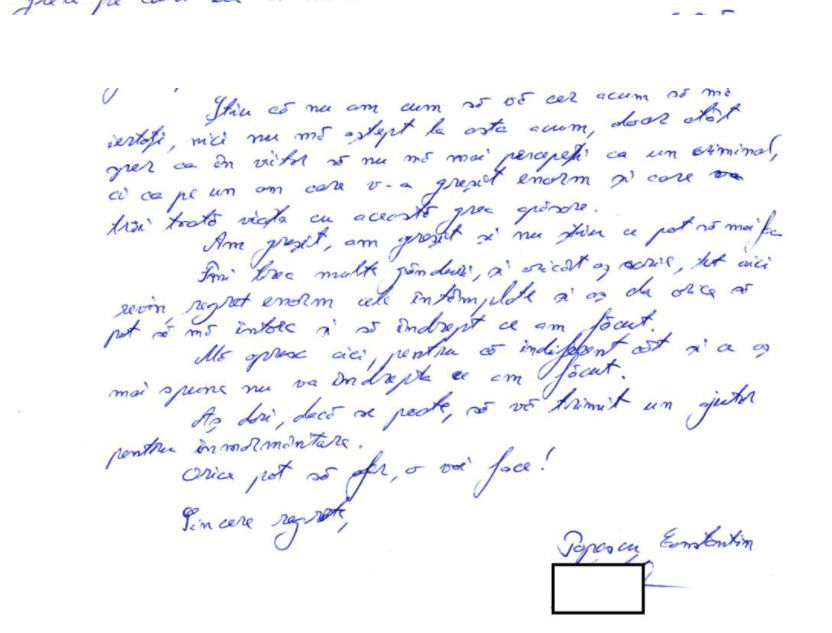 grea pe care
Știu că nu am cum să vă cer acum să mă
iertați, nici nu mă aștept la asta acum, doar atât
sper ca în viitor să nu mă mai percepeți ca un criminal,
ci ca pe un om care v-a greșit enorm și care va
trăi toată viața cu această grea apăsare.
Am greșit, am greșit și nu știu ce pot să mai fac
Îmi trec multe gânduri, și oricât aș scrie, tot aici
revin, regret enorm cele întâmplate și aș da orice să
pot să mă întorc și să îndrept ce am făcut.
Mă opresc aici, pentru că indiferent cât și ce aș
mai spune nu va îndrepta ce am făcut.
Aș dori, dacă se poate, să vă trimit un ajutor
pentru înmormântare.
Orice pot să ofer, o voi face!
Sincere regrete,
Popescu Constantin